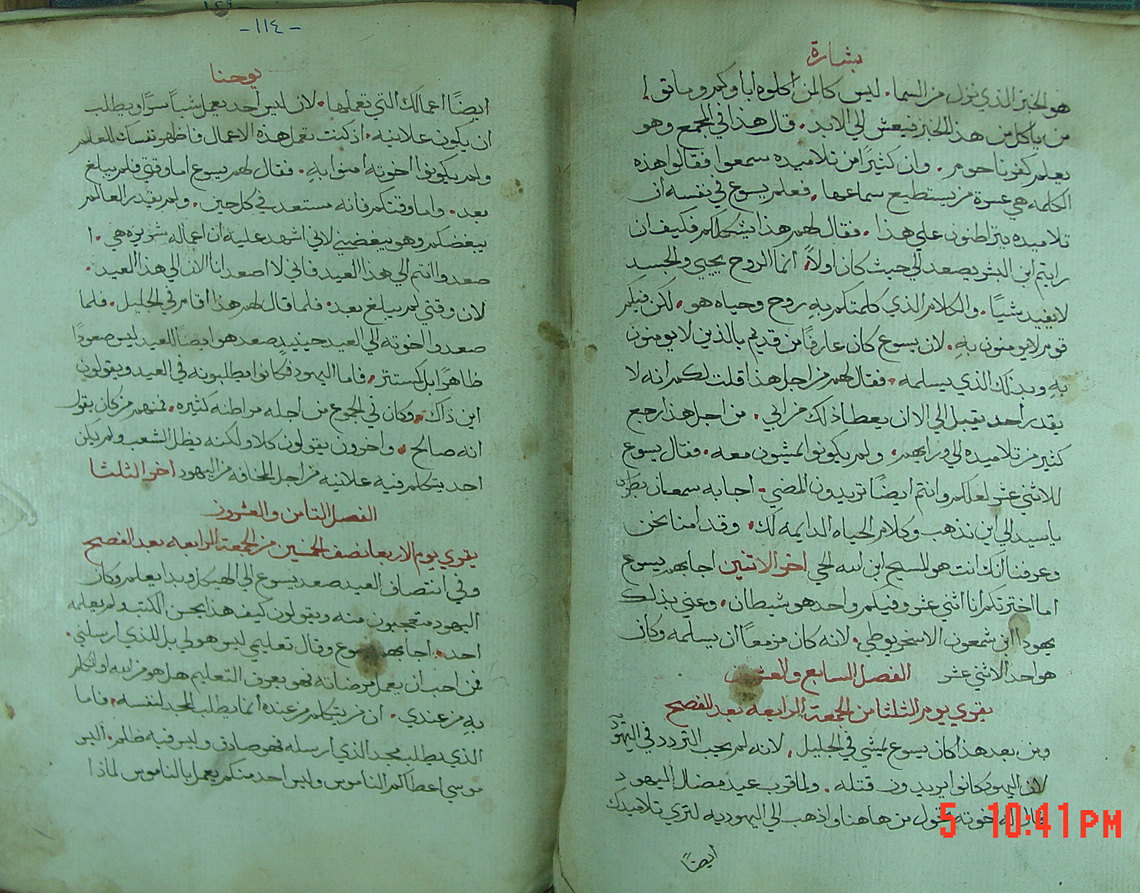 بشارة
هو الخبز الذي نزل من السما. ليس كالمن اكلوه اباوكم وماتوا
من ياكل من هذا الخبز فيعش الي الابد. قال هذا في المجمع وهو
يعلم كفرناحوم. وان كثيرًا من تلاميذه سمعوا فقالوا هذه
الكلمه هي عسرة من يستطيع سماعها. فعلم يسوع في نفسه ان
تلاميذه يتراطنون علي هذا. فقال لهم هذا يشككم فكيف ان
رايتم ابن البشر يصعد الي حيث كان اولاً. انما الروح يحيي والجسد
لا يفيد شيًا. والكلام الذي كلمتكم به روح وحياه هو. لكن فيكم
قوم لا يومنون به. لان يسوع كان عارفًا من قديم بالذين لا يومنون
به وبذلك الذي يسلمه. فقال لهم من اجل هذا قلت لكم انه لا
يقدر احد يقبل الي الا ان يعطا ذلك من ابي. من اجل هذا رجع
كثير من تلاميذه الي ورايهم. ولم يكونوا يمشون معه. فقال يسوع
للاثني عشر لعلكم وانتم ايضًا تريدون المضي. اجابه سمعان بطرس
ياسيد الي اين نذهب وكلام الحياه الدايمه لك. وقد امنا نحن
وعرفنا انك انت هو المسيح ابن الله الحي اخر الاثنين اجابهم يسوع
اما اخترتكم انا اثني عشر وفيكم واحد هو شطان. وعني بذلك
يهودا ابن شمعون الاسخريوطي. لانه كان مزمعًا ان يسلمه وكان
هو احد الاثني عشر الفصل السابع والعشرون
يقري يوم الثلثا من الجمعة الرابعه بعد الفصح
ومن بعد هذا كان يسوع يمشي في الجليل. لانه لم يحب التردد في اليهوديه
لان اليهود كانوا يريدون قتله. ولما قرب عيد مضال اليهود
قالوا له اخوته تحول من هاهنا واذهب الي اليهوديه لتري تلاميذك
ايضًا
5 10:41 PM
-١١٤-
يوحنا
ايضًا اعمالك التي تعملها. لان ليس احد يعمل شيًا سرًا ويطلب
ان يكون علانيه. اذ كنت تعمل هذه الاعمال فاظهر نفسك للعالم
ولم يكونوا اخوته امنوا به. فقال لهم يسوع اما وقتي فلم يبلغ
بعد. واما وقتكم فانه مستعد في كل حين. ولم يقدر العالم
يبغضكم وهو يبغضني لاني اشهد عليه ان اعماله شريره هي. ا
صعدوا انتم الي هذا العيد فاني لا اصعد انا الان الي هذا العيد.
لان وقتي لم يبلغ بعد. فلما قال لهم هذا اقام في الجليل. فلما
صعدوا اخوته الي العيد حينيذ صعد هو ايضًا العيد ليس صعودًا
ظاهرًا بل كمستتر. فاما اليهود فكانوا يطلبونه في العيد ويقولون
اين ذاك. وكان في الجموع من اجله مراطنه كثيره. فمنهم من كان يقول
انه صالح. واخرون يقولون كلا ولكنه يظل الشعب ولم يكن
احد يتكلم فيه علانيه من اجل المخافه من اليهود اخر الثلثا
الفصل الثامن والعشرون
يقري يوم الاربعا نصف الخمسين من الجمعة الرابعه بعد الفصح
وفي انتصاف العيد صعد يسوع الي الهيكل وبدا يعلم وكان
اليهود متعجبون منه ويقولون كيف هذا يحسن الكتب ولم يعلمه
احد. اجابهم يسوع وقال تعليمي ليس هو لي بل للذي ارسلني.
فمن احب ان يعمل مرضاته فهو يعرف التعليم هل هو من الله او اتكلم
به من عندي. ان من يتكلم من عنده انما يطلب المجد لنفسه. فاما
الذي يطلب مجد الذي ارسله فهو صادق وليس فيه ظلم. اليس
موسي اعطاكم الناموس وليس احد منكم يعمل بالناموس لماذا